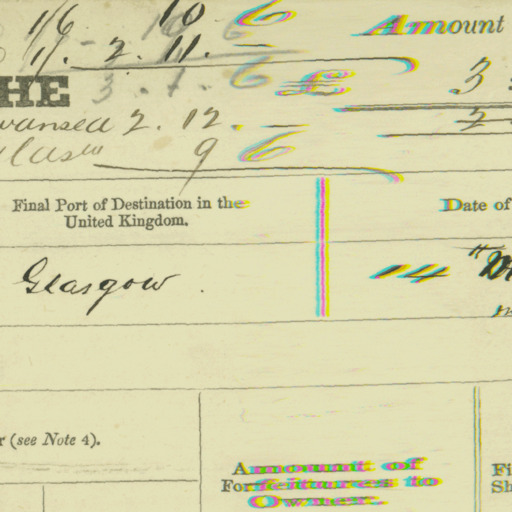 1/6 10 6
Amount
11. 2. 11. —
3
HE 3. 1. 6 £
wansea 2. 12. —
9 6
Final Port of Destination in the
United Kingdom.
Date of
Glasgow . 14
r (see Note 4).
Amount of
Forfeitures to
Owner.
Fi
Sh